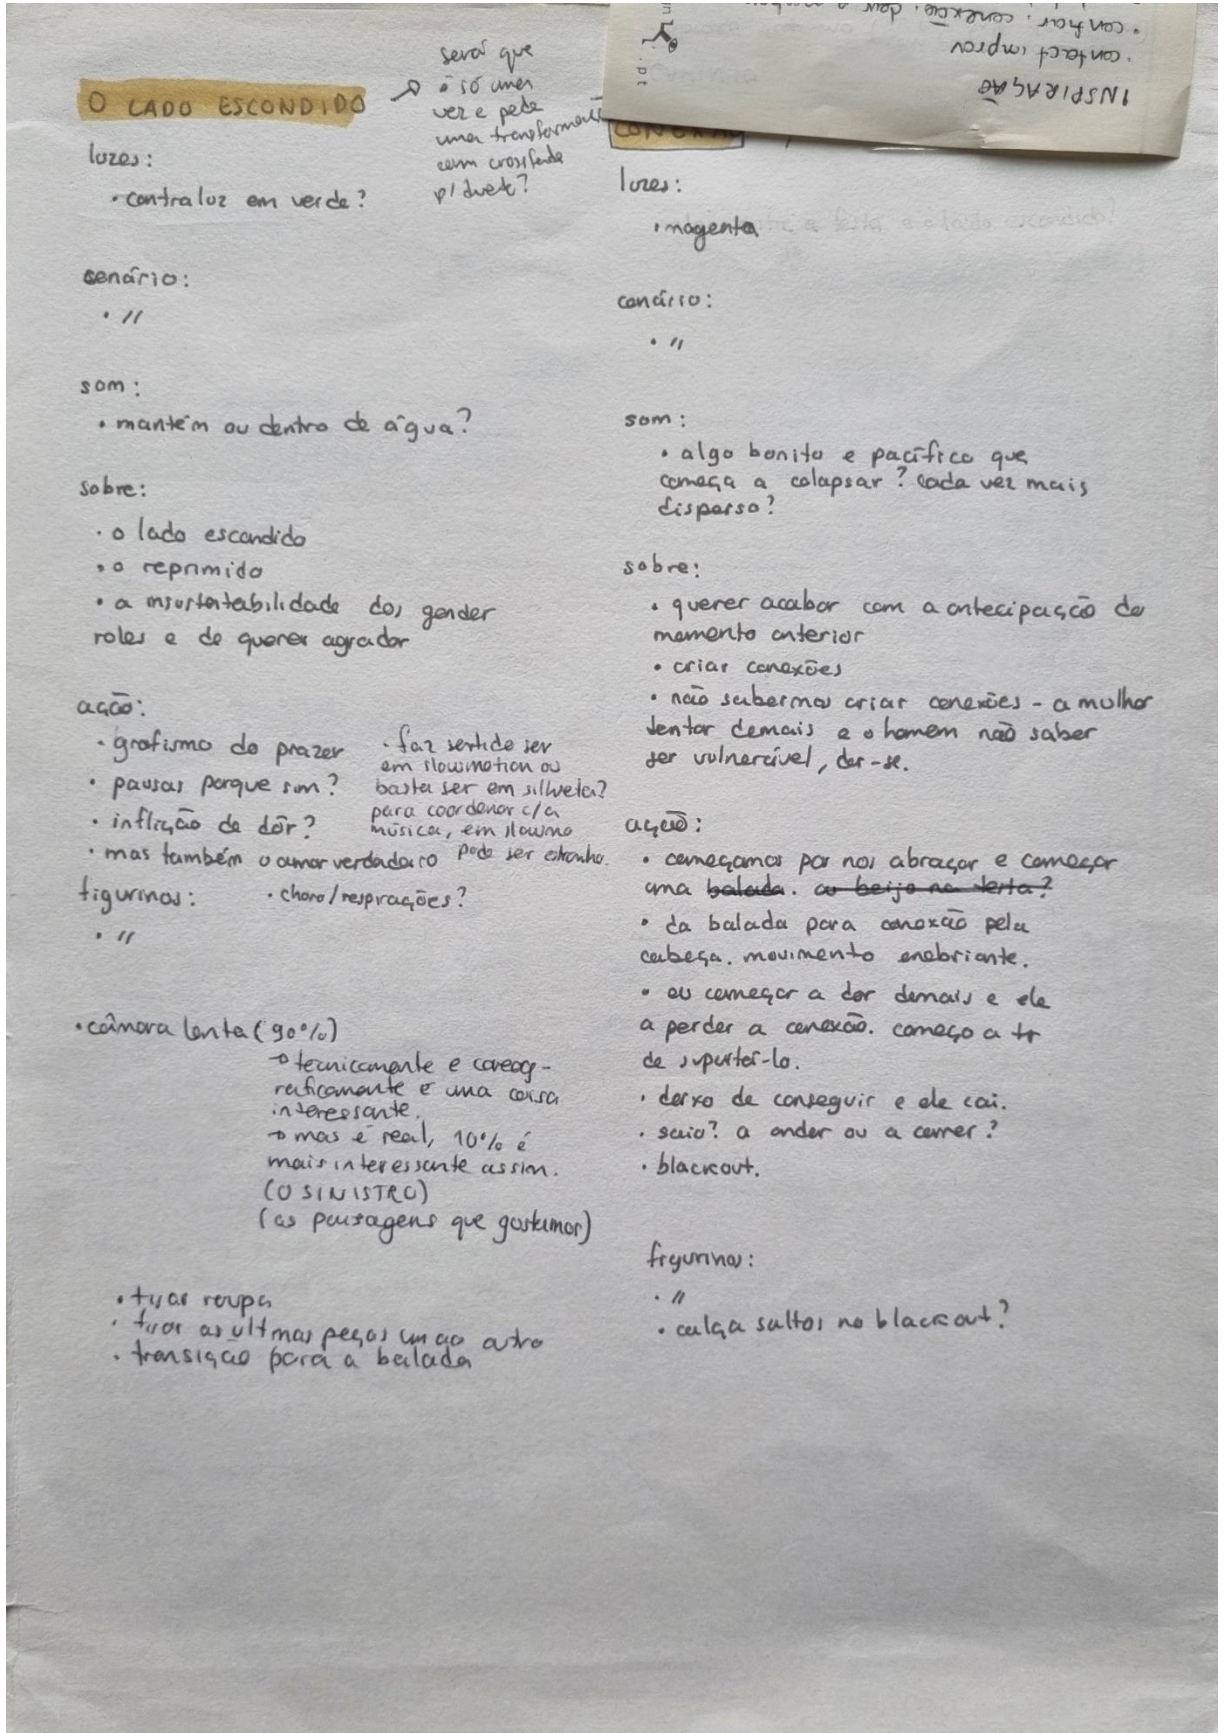 O LADO ESCONDIDO
será que
é só uma
vez e pede
uma transformação
com crossfade
p/ dueto?
luzes:
• contraluz em verde?
cenário:
• "
som:
• mantém ou dentro de água?
sobre:
• o lado escondido
• o reprimido
• a insustentabilidade dos gender
roles e de querer agradar
ação:
• grafismo do prazer
• pausas porque sim?
• inflição de dôr?
• mas também o amor verdadeiro
• faz sentido ser
em slowmotion ou
basta ser em silhueta?
para coordenar c/ a
música, em slowmo
pode ser estranho.
• choro/respirações?
figurinos:
• "
• câmara lenta (90%)
→ tecnicamente e coreog-
raficamente é uma coisa
interessante.
→ mas é real, 10% é
mais interessante assim.
(O SINISTRO)
(as paisagens que gostamos)
• tirar roupa
• tirar as ultimas peças um ao outro
• transiçao para a balada
INSPIRAÇÃO
• contact improv
• contrair, conexão,
.pt
luzes:
• magenta
a festa e o lado escondido?
cenário:
• "
som:
• algo bonito e pacífico que
começa a colapsar? cada vez mais
disperso?
sobre:
• querer acabar com a antecipação do
momento anterior
• criar conexões
• não sabermos criar conexões - a mulher
tentar demais e o homem não saber
ser vulnerável, dar-se.
ação:
• começamos por nos abraçar e começar
uma balada. ou beijo na testa?
• da balada para conexão pela
cabeça. movimento enebriante.
• eu começar a dar demais e ele
a perder a conexão. começo a tr
de suportá-lo.
• deixo de conseguir e ele cai.
• saio? a andar ou a correr?
• blackout.
figurinos:
• "
• calça saltos no blackout?